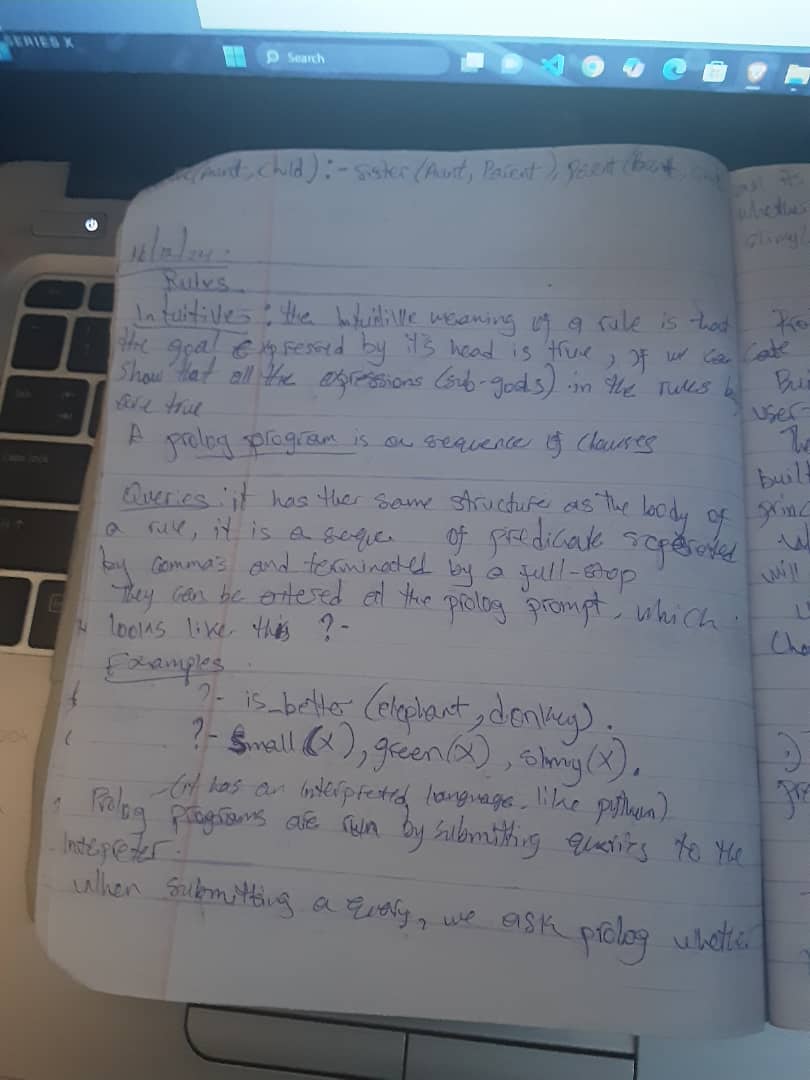 SERIES X
Search
(Aunt, Child) :- Sister (Aunt, Parent), Parent (
Rules
Intuitive : the intuitive meaning of a rule is that
the goal expressed by it's head is true, if we can
Show that all the expressions (sub-goals) in the rules b
are true
A prolog program is a sequence of Clauses
Queries : it has ther same structure as the body of
a rule, it is a seque of predicate seperated
by Comma's and terminated by a full-stop
They can be entered at the prolog prompt, which
looks like this ?-
Examples
?- is_better (elephant, donkey).
?- Small (X), green (X), slimy (X).
(it has an interpreted language like python)
Prolog programs are run by submitting queries to the
Intepreter.
when submitting a query, we ask prolog whether
whether
slimy
Cate
Bui
User
The
built
princ
will
Cha